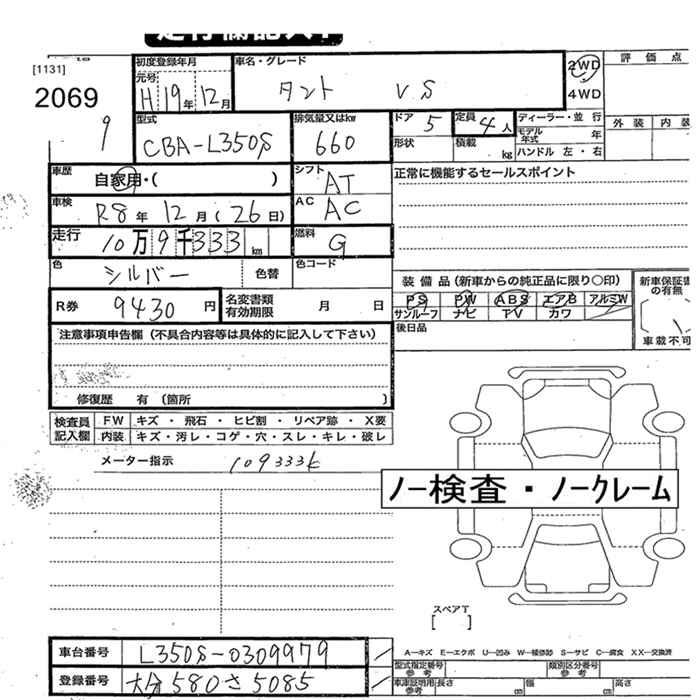 走行欄記入中
[1131]
2069
9
初度登録年月 元号 H19年12月
車名・グレード タント VS
2WD
4WD
評価点
外装 内装
型式 CBA-L350S
排気量又はkw 660
ドア 5
形状
定員 4人
積載 kg
ディーラー・並行
モデル年式 年
ハンドル 左・右
車歴 自家用・( )
シフト AT
正常に機能するセールスポイント
車検 R8年12月(26日)
AC AC
走行 10万9千333km
燃料 G
色 シルバー 色替
色コード
装備品(新車からの純正品に限り○印)
PS PW ABS エアB アルミW
サンルーフ ナビ TV カワ
新車保証書の有無
( )
車載不可
R券 9430円
名変書類有効期限 月 日
後日品
注意事項申告欄(不具合内容等は具体的に記入して下さい)
修復歴 有 〔箇所 〕
検査員記入欄
FW キズ・飛石・ヒビ割・リペア跡・X要
内装 キズ・汚レ・コゲ・穴・スレ・キレ・破レ
メーター指示 109333k
ノー検査・ノークレーム
スペアT
[ ]
車台番号 L350S-0309979
登録番号 大分580さ5085
A-キズ E-エクボ U-凹み W-補修跡 S-サビ C-腐食 XX-交換済
型式指定番号 参考
類別区分番号 参考
車庫証明用 参考 長さ 幅 高さ